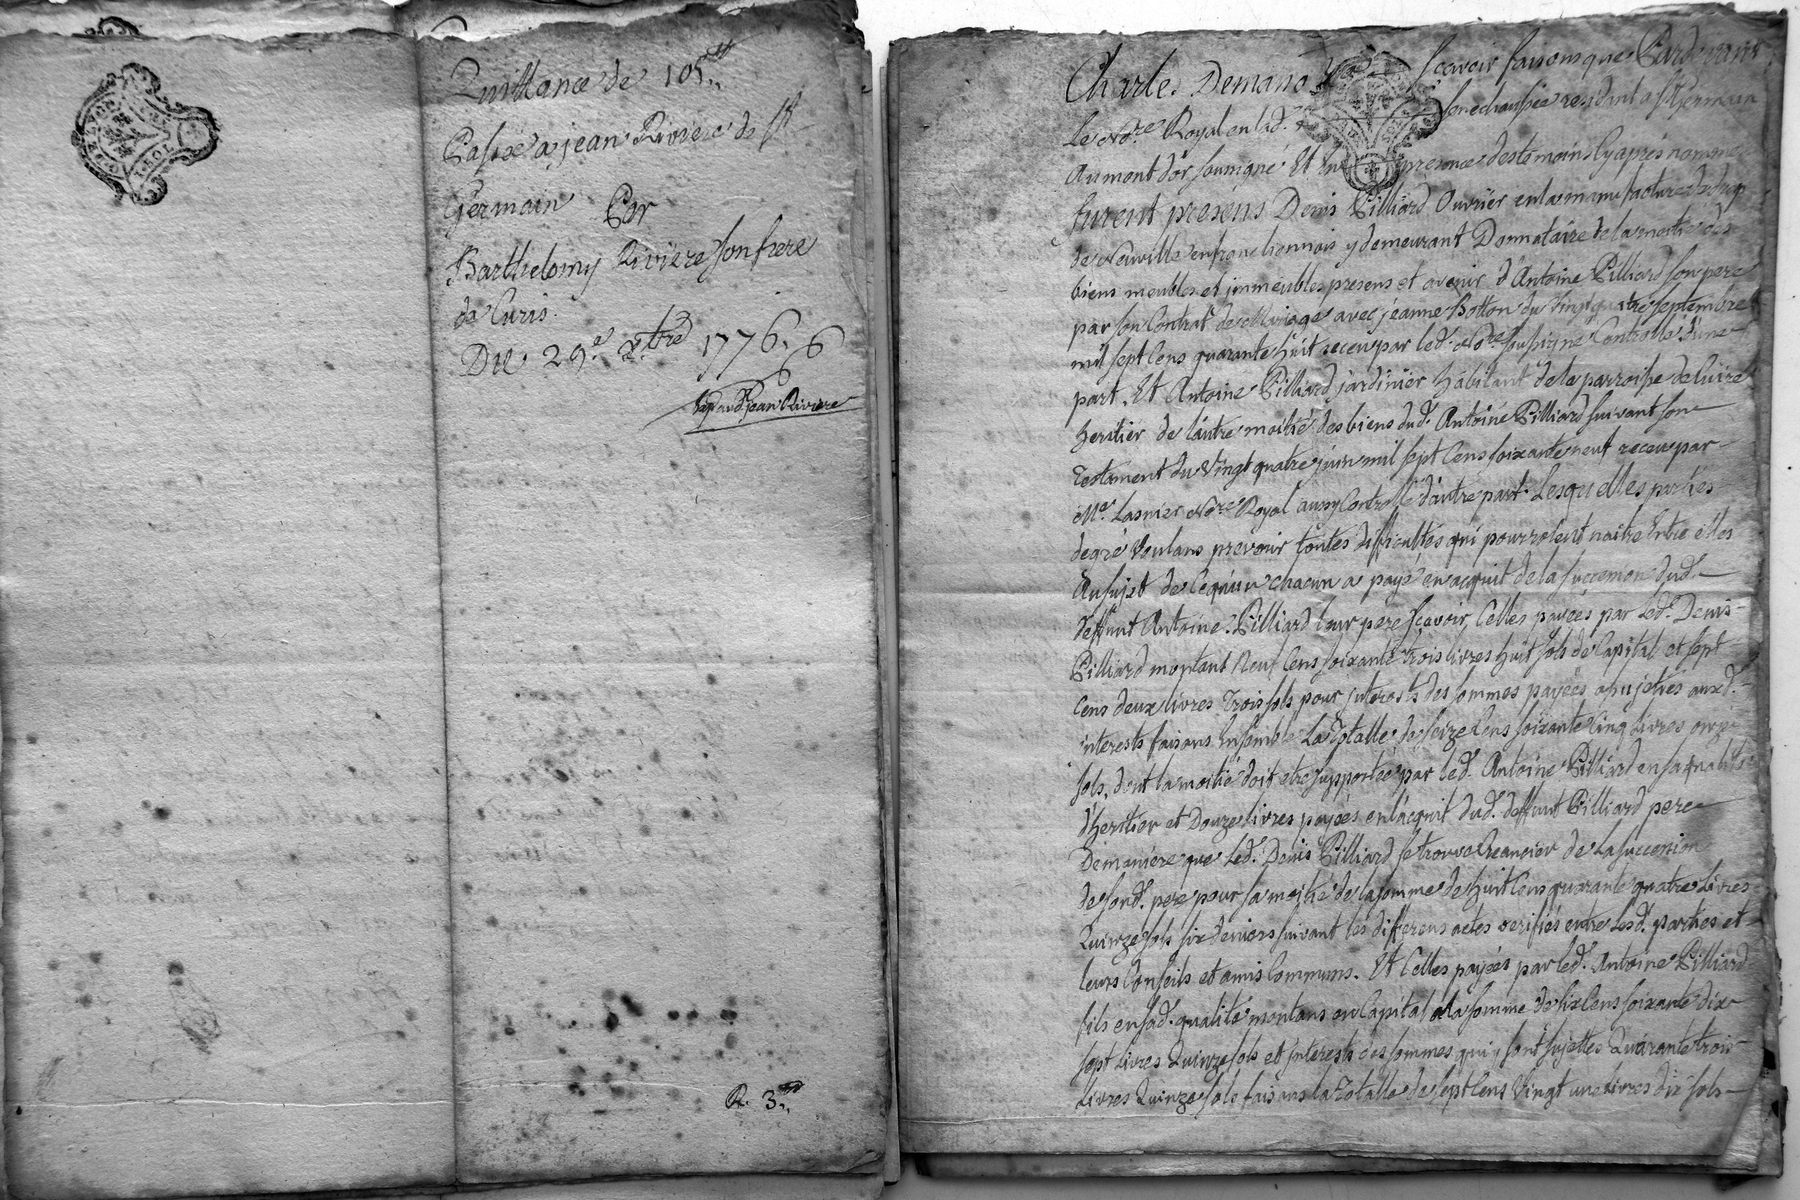 Quittance de 105.tt
Passée a jean Riviere de St
Germain Par
Barthelemy Riviere son frere
de Curis.
Du. 29.e 1776.
jean Riviere
R. 3.tt
Charles Demano scavoir faisons que Pardevant
Le Nore Royal en lad. senechaussée residant a St Germain
Au mont d'or soussigné Et En presence des temoins cy aprés nommés
furent presens Denis Pilliard Ouvrier en la manufacture de
de Neuville en franc lionnois y demeurant Donnataire de la moitié des
biens meubles et immeubles presens et avenir d'Antoine Pilliard son pere
par son Contrat de Mariage avec jéanne Botton du Vingt quatre septembre
mil sept Cens quarante huit receu par led. Nore soussigné Controllé d'une
part, Et Antoine Pilliard jardinier habitant de la parroisse de Cuire
heritier de l'autre moitié des biens dud. Antoine Pilliard suivant son
Testament du Vingt quatre juin mil sept Cens soixante neuf receu par
Me. Lasnier Nore Royal aussy Controllé d'autre part. Lesquelles parties
de gré Voulans prevoir toutes difficultés qui pourroient naitre Entre elles
Au sujet de Ce qu'un chacun a payé en acquit de la succession dud.
deffunt Antoine Pilliard leur pere scavoir, Celles payées par led. Denis
Pilliard montant Neuf Cens soixante trois livres huit sols de Capital et sept
Cens deux livres Trois sols pour interests des sommes payées assujetties auxd.
interests faisans Ensemble La Totalle de seize Cens soixante Cinq livres onze
sols, dont la moitié doit etre supportée par led. Antoine Pilliard en sa qualité
d'heritier et Douze livres payées en l'acquit dud. deffunt Pilliard pere
De maniere que Led. Denis Pilliard se trouve Creancier de La succession
de sond. pere pour sa moitié de la somme de huit Cens quarante quatre Livres
Quinze sols six deniers suivant les differens actes verifiés entre Lesd. parties et
leurs Conseils et amis Communs. Et Celles payées par led. Antoine Pilliard
fils en sad. qualité montans en Capital a la somme de six Cens soixante dix
sept Livres Quinze sols et interests des sommes qui y sont sujettes Quarante trois
Livres Quinze sols faisans la Totalle de sept Cens Vingt une Livres dix sols